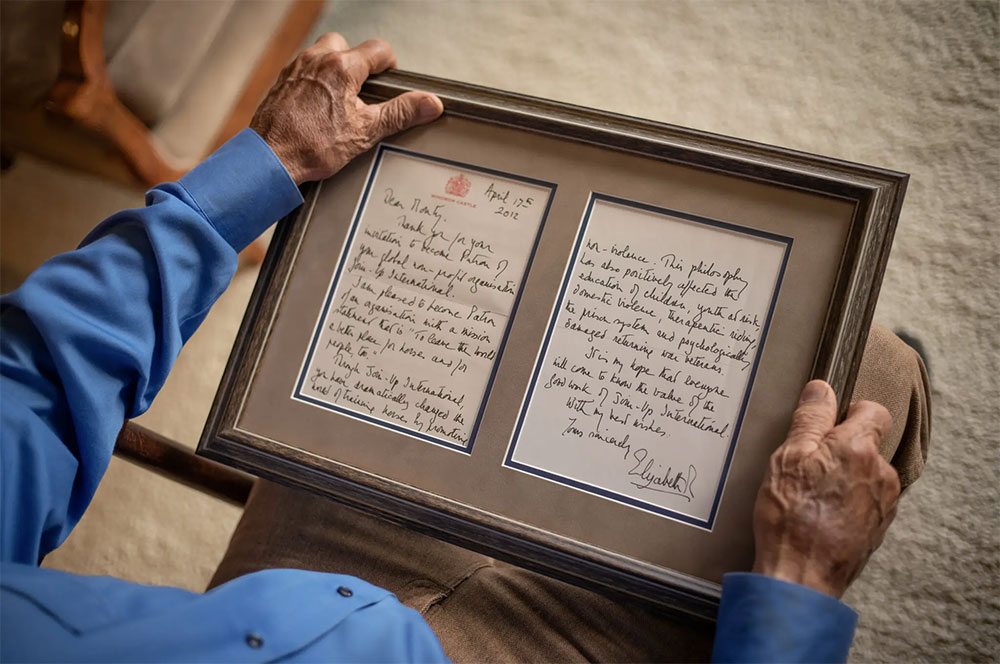 WINDSOR CASTLE
April 17th
2012
Dear Monty,
Thank you for your
invitation to become Patron of
your global non-profit organisation
Join-Up International.
I am pleased to become Patron
of an organisation with a mission
statement that is "To leave the world
a better place for horses and for
people, too."
Through Join-Up International,
you have dramatically changed the
world of training horses by promoting
non-violence. This philosophy
has also positively affected the
education of children, youth at risk,
domestic violence, therapeutic riding,
the prison system and psychologically
damaged returning war veterans.
It is my hope that everyone
will come to know the value of the
good work of Join-Up International.
With my best wishes.
Yours sincerely
Elizabeth R